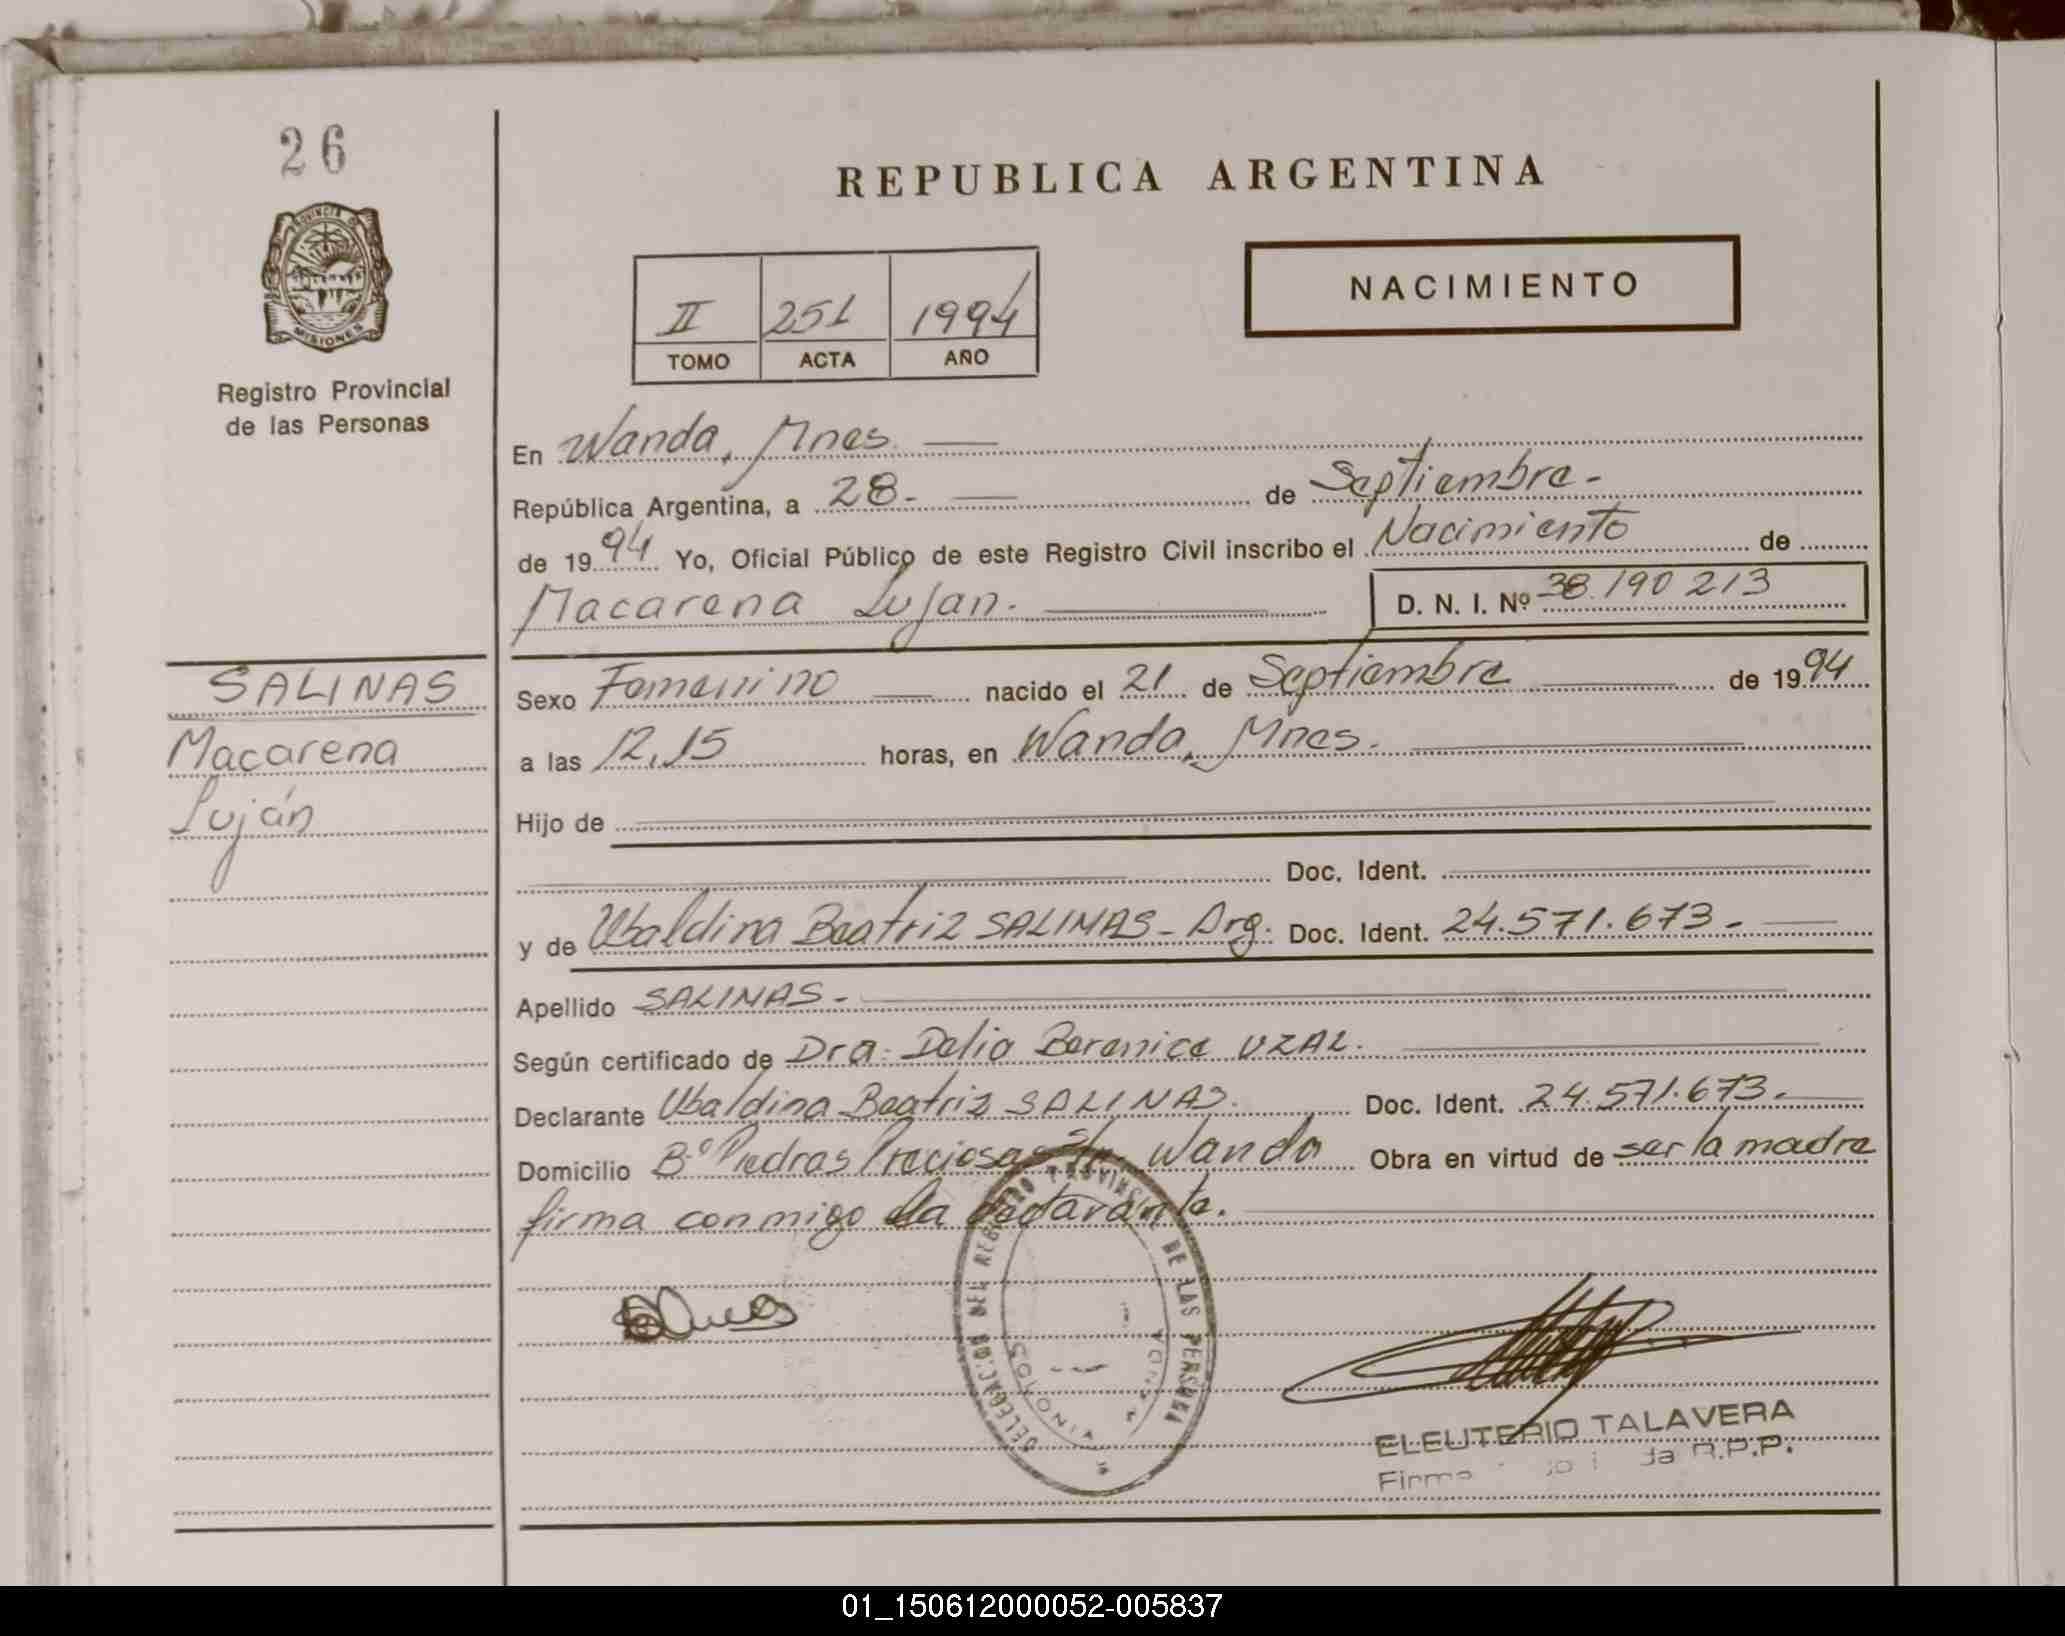 26
PROVINCIA DE
MISIONES
Registro Provincial
de las Personas
SALINAS
Macarena
Luján
REPUBLICA ARGENTINA
NACIMIENTO
II 251 1994
TOMO ACTA AÑO
En Wanda, Mnes.
República Argentina, a 28- de Septiembre-
de 1994 Yo, Oficial Público de este Registro Civil inscribo el Nacimiento de
Macarena Lujan. D. N. I. Nº 38.190 213
Sexo Femenino nacido el 21 de Septiembre de 1994
a las 12,15 horas, en Wanda, Mnes.
Hijo de
Doc. Ident.
y de Ubaldina Beatriz SALINAS- Arg. Doc. Ident. 24.571.673-
Apellido SALINAS-
Según certificado de Dra. Delia Berenice UZAL.
Declarante Ubaldina Beatriz SALINAS. Doc. Ident. 24.571.673-
Domicilio Bº Piedras Preciosas s/n. Wanda Obra en virtud de ser la madre
firma conmigo la declarante.
DELEGACION DEL REGISTRO PROVINCIAL DE LAS PERSONAS
WANDA
MISIONES
ELEUTERIO TALAVERA
Firma R.P.P.
01_150612000052-005837